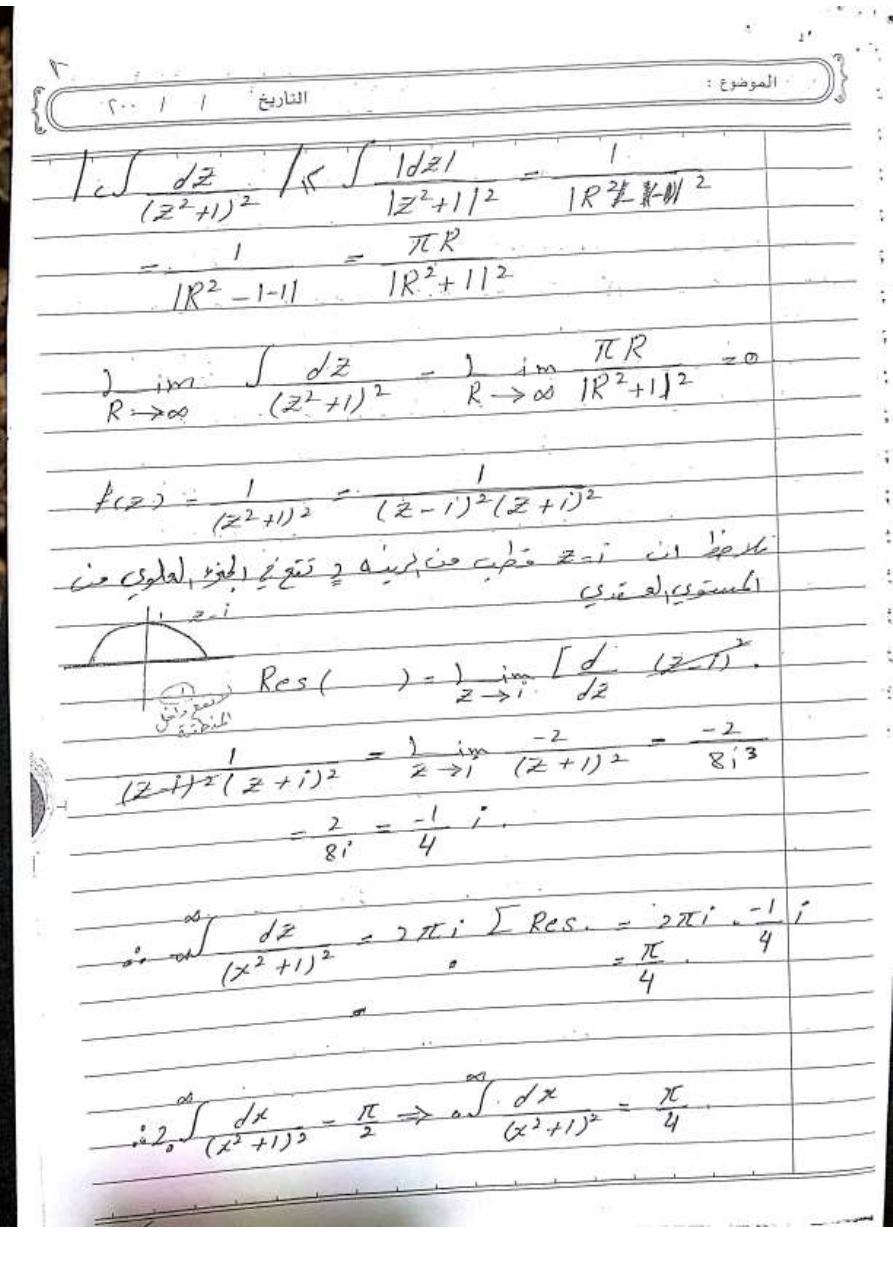 الموضوع :
التاريخ / / ٢٠٠
| c∫ dz/(z²+1)² | ≤ ∫ |dz|/|z²+1|² = 1/|R²-|-1||²
= 1/|R² -|-1|| = πR/|R²+1|²
lim R→∞ ∫ dz/(z²+1)² = lim R→∞ πR/|R²+1|² = 0
f(z) = 1/(z²+1)² = 1/((z-i)²(z+i)²)
نلاحظ ان z=i قطب من الرتبه 2 تقع في الجزء العلوي من
المستوي العقدي
z=i
Res( ) = lim z→i [ d/dz (z-i)² .
تقع داخل
المنطقة
1/((z-i)²(z+i)²) = lim z→i -2/(z+1)² = -2/8i³
= 2/8i = -1/4 i .
∴ -∞∫∞ dz/(x²+1)² = 2πi Σ Res. = 2πi . -1/4 i
= π/4 .
∴ 2 0∫∞ dx/(x²+1)² = π/2 ⇒ 0∫∞ dx/(x²+1)² = π/4 .